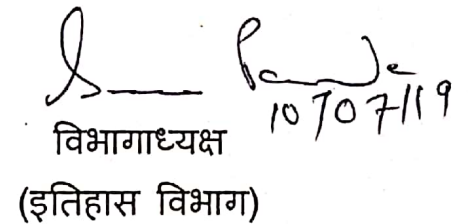 10/07/19
विभागाध्यक्ष
(इतिहास विभाग)